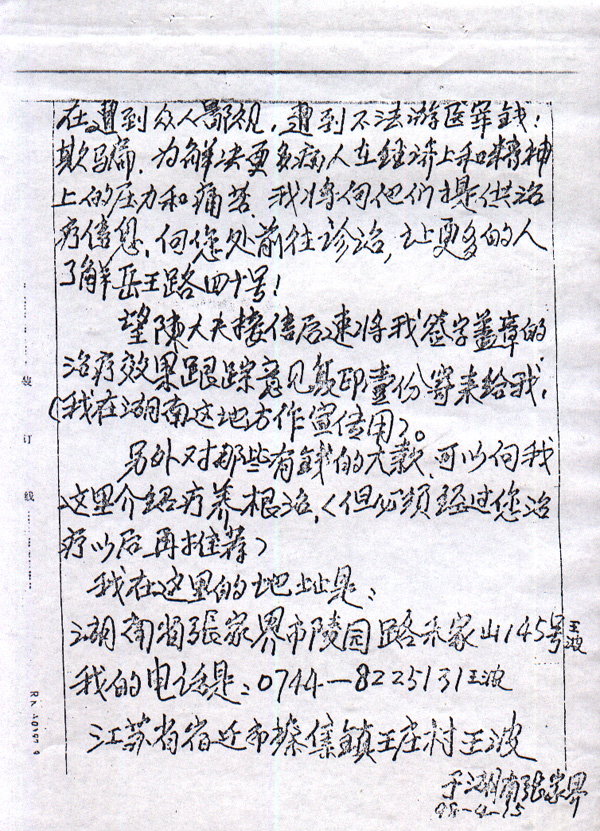 在遭到众人鄙视,遭到不法游医宰钱!
欺骗,为解决更多病人在经济上和精神
上的压力和痛苦,我将向他们提供治
疗信息,向您处前往诊治,让更多的人
了解岳王路四十号!
望陳大夫接信后速将我签字盖章的
治疗效果跟踪意见复印壹份寄来给我,
(我在湖南这地方作宣传用)。
另外对那些有錢的大款,可以向我
这里介绍疗养根治,(但必须经过您治
疗以后再推荐)
我在这里的地址是:
湖南省張家界市陵园路朱家山145号王波
我的电话是:0744—8225131王波
江苏省宿迁市 集鎮王庄村王波
于湖南張家界
98-4-15
装
订
线